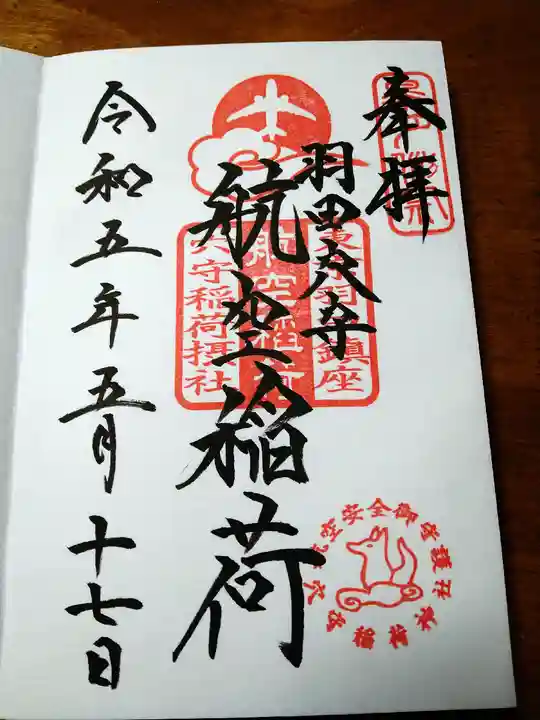 奉拝
羽田穴守
航空稲荷
令和五年五月十七日
東京羽田鎮座
航空稲荷
穴守稲荷摂社
航空安全御守護社
穴守稲荷神社